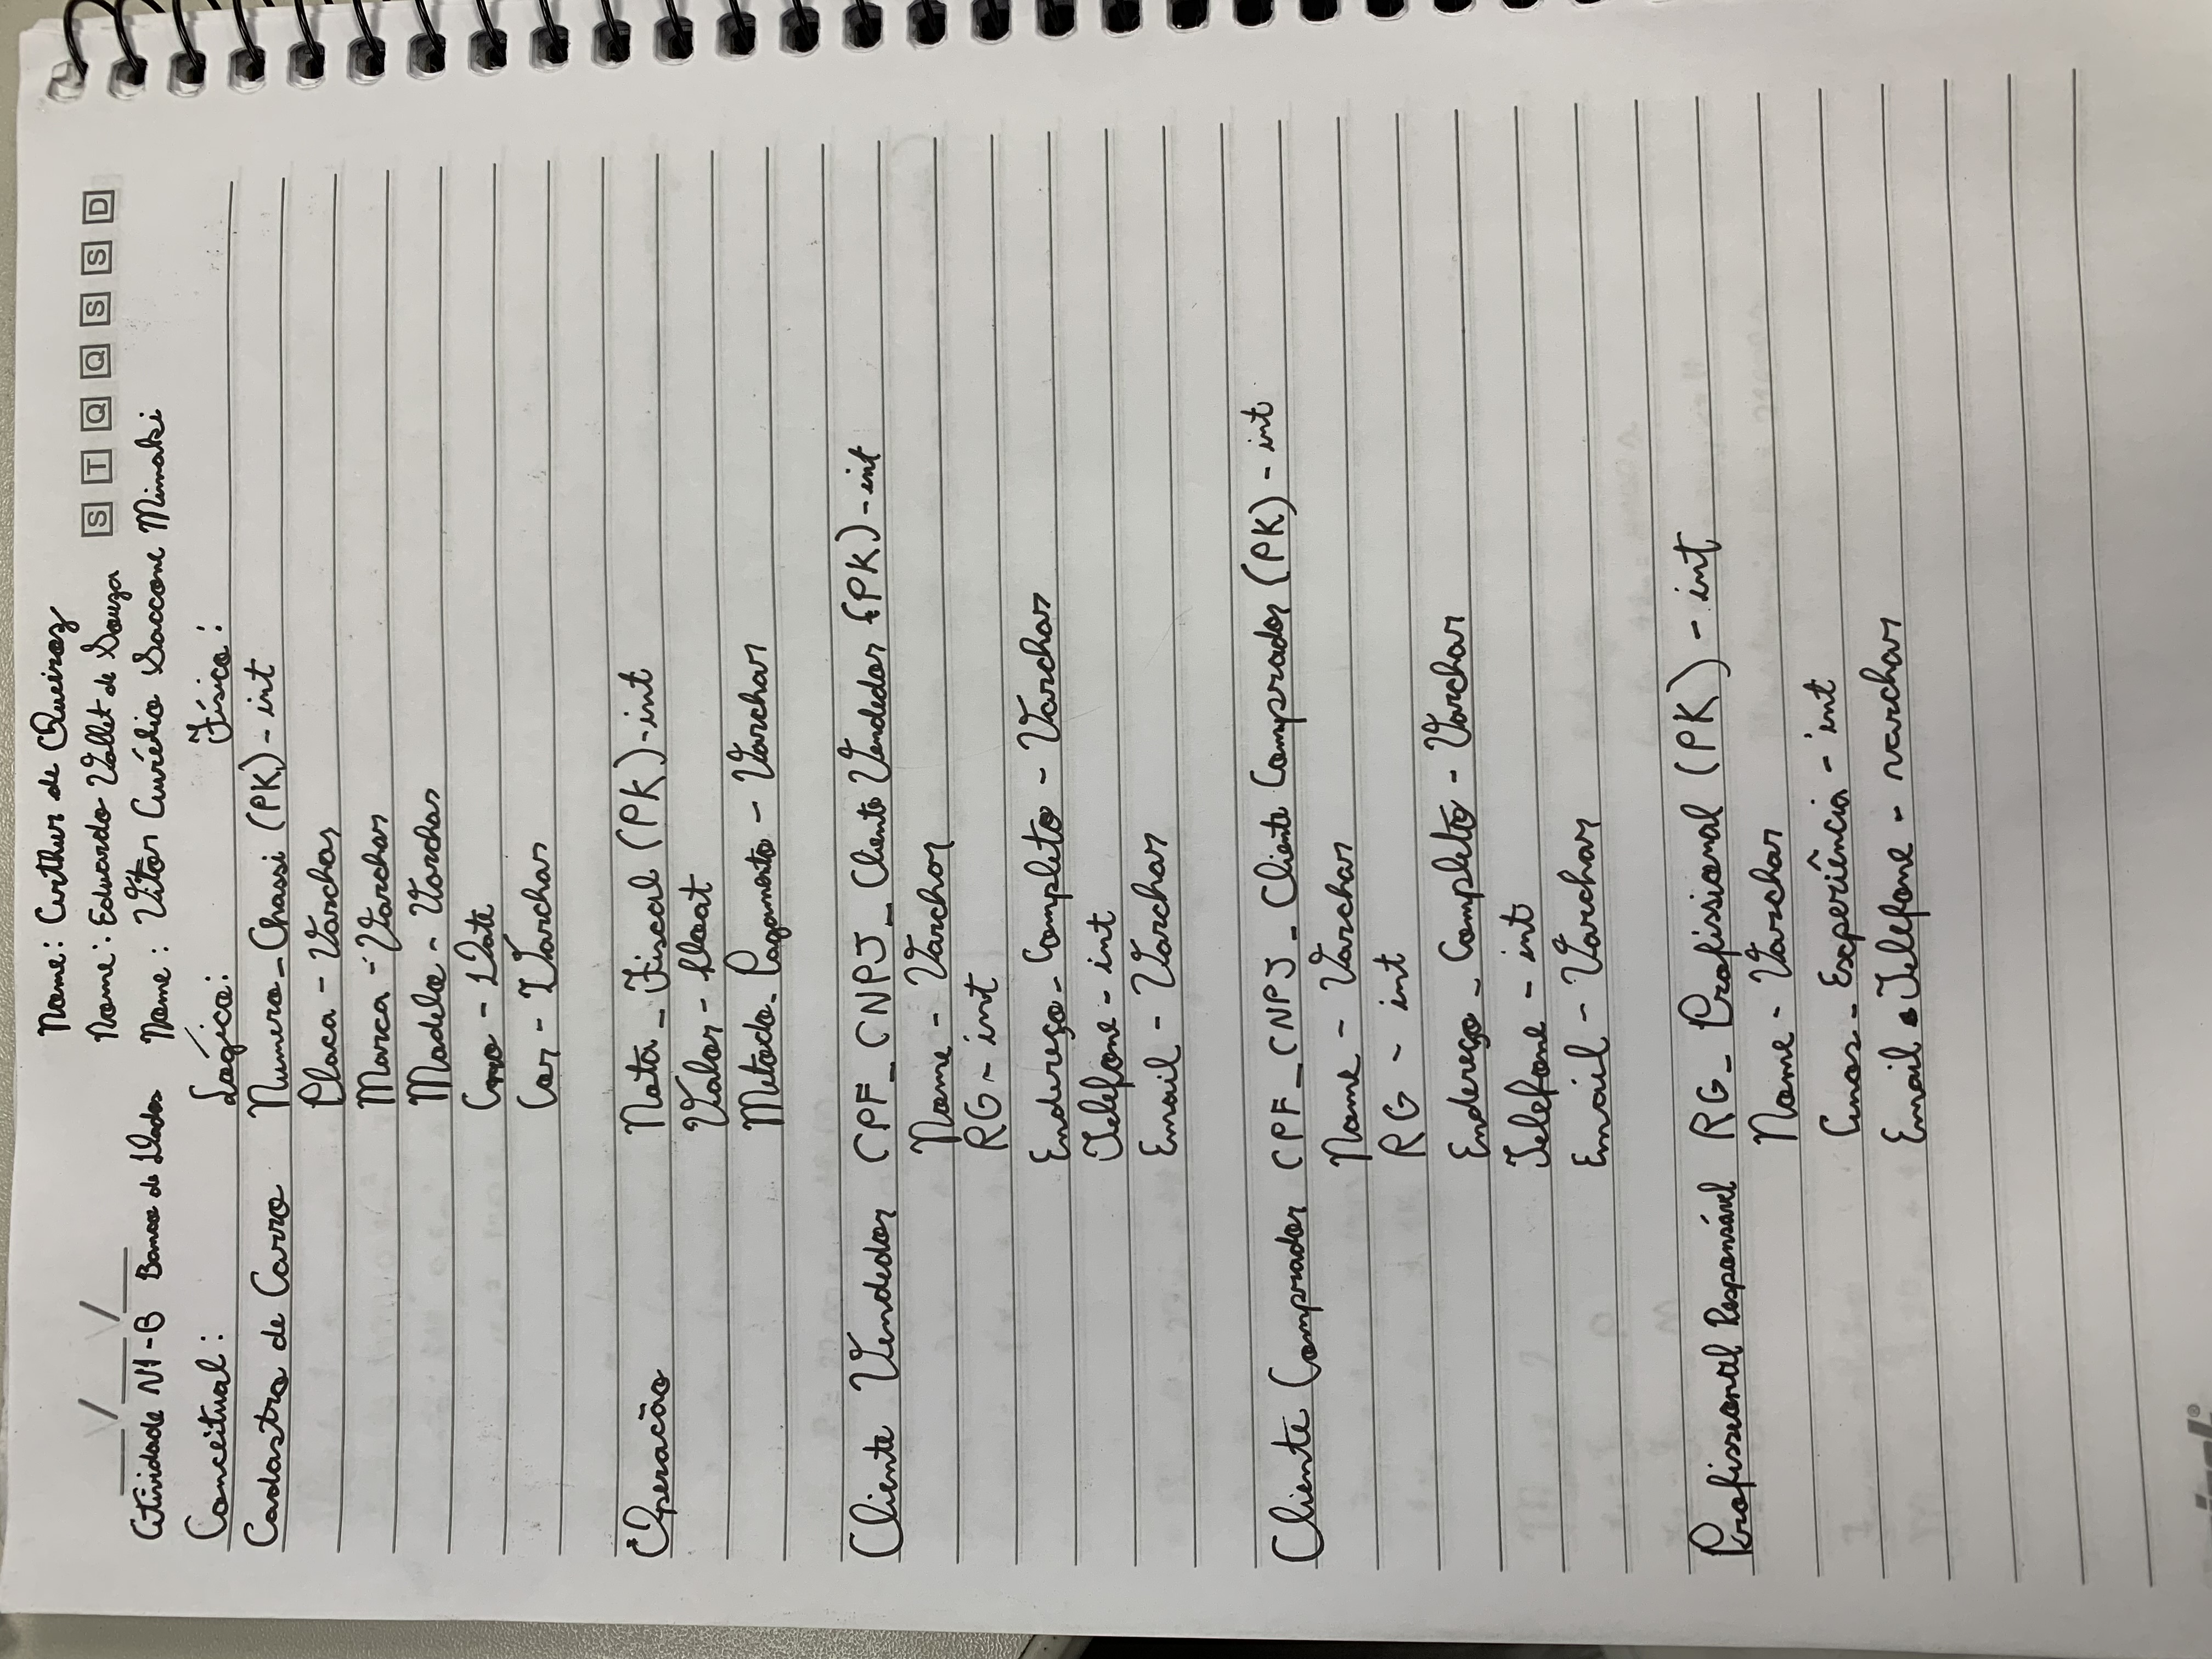 Nome: Arthur de Queiroz
Nome: Eduardo Vallet de Souza
S T Q Q S S D
Atividade N1-B Banco de Dados Nome: Vitor Aurélio Saccone Mimaki
Conceitual: Lógico: Físico:
Cadastro de Carro Numero_Chassi (PK) - int
Placa - Varchar
Marca - Varchar
Modelo - Varchar
Ano - Date
Cor - Varchar
Operacão Nota_Fiscal (PK) - int
Valor - float
Metodo_Pagamento - Varchar
Cliente Vendedor CPF_CNPJ_Cliente Vendedor (PK) - int
Nome - Varchar
RG - int
Endereço_Completo - Varchar
Telefone - int
Email - Varchar
Cliente Comprador CPF_CNPJ_Cliente Comprador (PK) - int
Nome - Varchar
RG - int
Endereço_Completo - Varchar
Telefone - int
Email - Varchar
Profissional Responsável RG_Profissional (PK) - int
Nome - Varchar
Anos_Experiência - int
Email • Telefone - varchar